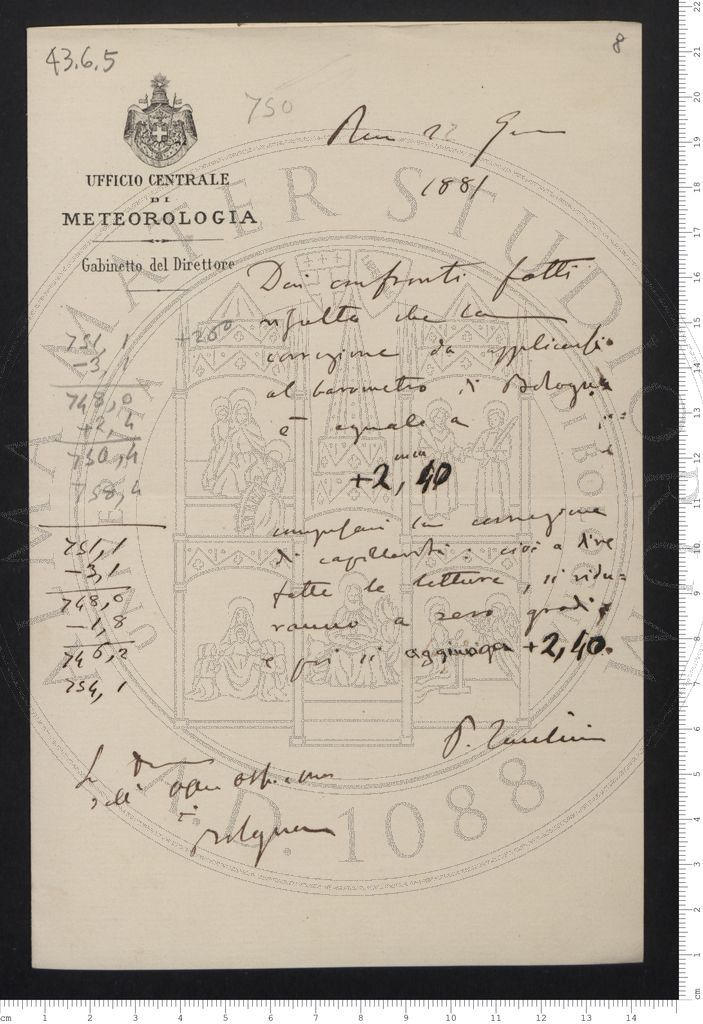 43.6.5
8
750
22
1881
UFFICIO CENTRALE
DI
METEOROLOGIA
Gabinetto del Direttore
Dai confronti fatti
risulta che la
correzione da applicarsi
al barometro di Bologna
è eguale a
mm
+2,40
compresavi la correzione
di capillarità: cioè a dire
fatte le letture, si ridu=
ranno a zero gradi,
e poi si aggiunga +2,40.
P. Tacchini
Bologna
751,1
-3,1
748,0
+2,4
750,4
758,4
+200
751,1
-3,1
748,0
-1,8
746,2
754,1
ALMA MATER STUDIORUM
A.D. 1088